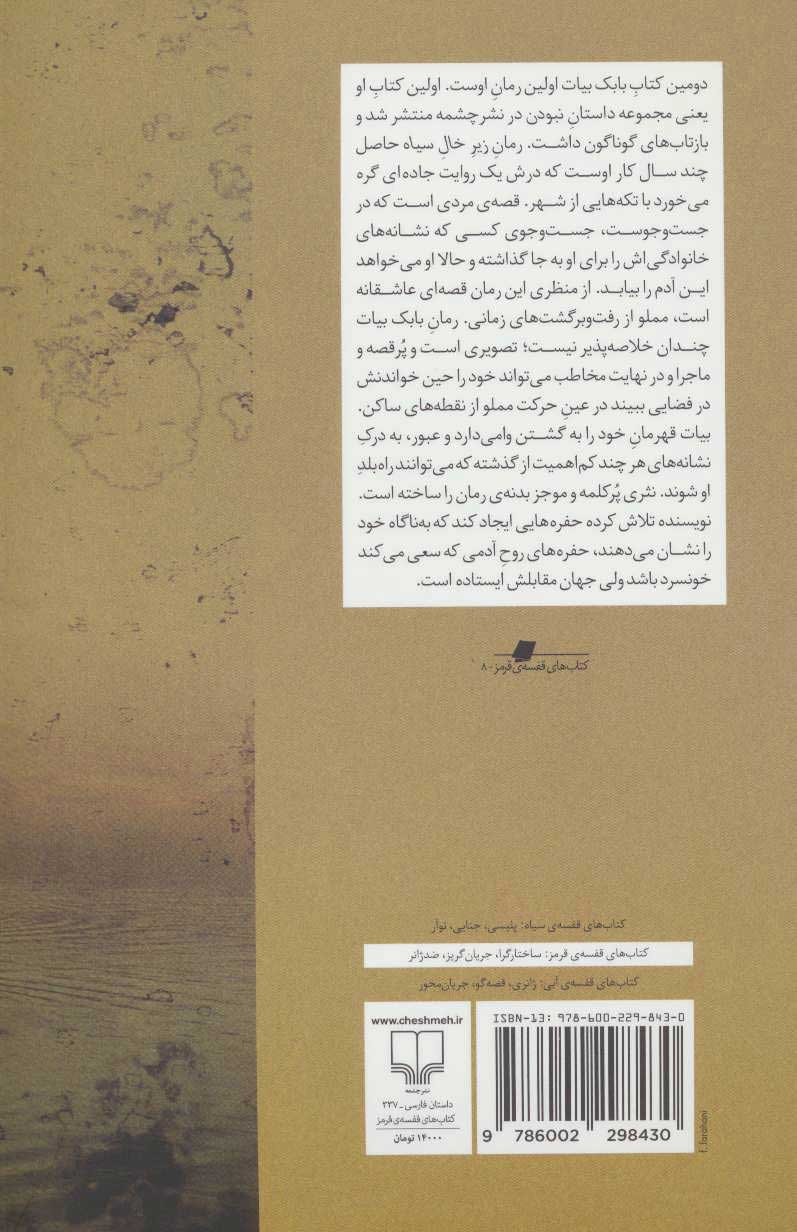 دومین کتابِ بابک بیات اولین رمانِ اوست. اولین کتابِ او
یعنی مجموعه داستانِ نبودن در نشرچشمه منتشر شد و
بازتاب‌های گوناگون داشت. رمانِ زیرِ خالِ سیاه حاصل
چند سال کار اوست که درش یک روایت جاده‌ای گره
می‌خورد با تکه‌هایی از شهر. قصه‌ی مردی است که در
جست‌وجوست، جست‌وجوی کسی که نشانه‌های
خانوادگی‌اش را برای او به جا گذاشته و حالا او می‌خواهد
این آدم را بیابد. از منظری این رمان قصه‌ای عاشقانه
است، مملو از رفت‌وبرگشت‌های زمانی. رمانِ بابک بیات
چندان خلاصه‌پذیر نیست؛ تصویری است و پُرقصه و
ماجرا و در نهایت مخاطب می‌تواند خود را حین خواندنش
در فضایی ببیند در عینِ حرکت مملو از نقطه‌های ساکن.
بیات قهرمانِ خود را به گشتن وامی‌دارد و عبور، به درکِ
نشانه‌های هر چند کم‌اهمیت از گذشته که می‌توانند راه‌بلدِ
او شوند. نثری پُرکلمه و موجز بدنه‌ی رمان را ساخته است.
نویسنده تلاش کرده حفره‌هایی ایجاد کند که به‌ناگاه خود
را نشان می‌دهند، حفره‌های روحِ آدمی که سعی می‌کند
خونسرد باشد ولی جهان مقابلش ایستاده است.
کتاب‌های قفسه‌ی قرمز - ۸
کتاب‌های قفسه‌ی سیاه: پلیسی، جنایی، نوآر
کتاب‌های قفسه‌ی قرمز: ساختارگرا، جریان‌گریز، ضدژانر
کتاب‌های قفسه‌ی آبی: ژانری، قصه‌گو، جریان‌محور
www.cheshmeh.ir
نشرچشمه
داستان فارسی - ۳۳۷
کتاب‌های قفسه‌ی قرمز
۱۴۰۰۰ تومان
ISBN-13: 978-600-229-843-0
9 786002 298430
f.farahani